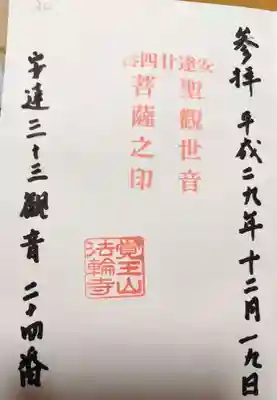 参拝 平成二九年十二月一九日
安達廿四番
聖觀世音
菩薩之印
覚王山
法輪寺
安達三十三観音 二十四番